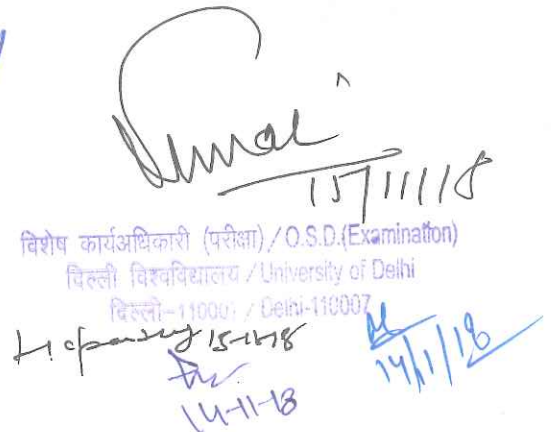 15/11/18
विशेष कार्यअधिकारी (परीक्षा) / O.S.D.(Examination)
दिल्ली विश्वविद्यालय / University of Delhi
दिल्ली-110007 / Delhi-110007
15-11-18
14/11/18
14-11-18